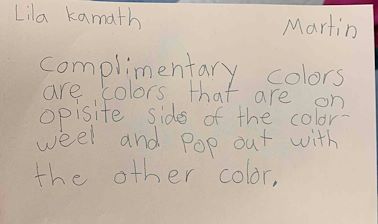 Lila Kamath Martin
Complimentary colors
are colors that are on
opisite side of the color-
weel and pop out with
the other color.